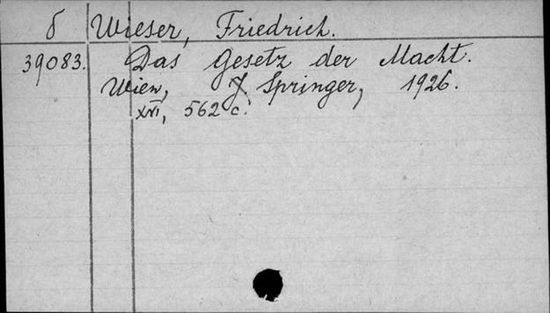 δ Wieser, Friedrich.
39083. Das Gesetz der Macht.
Wien, J. Springer, 1926.
XVI, 562 c.